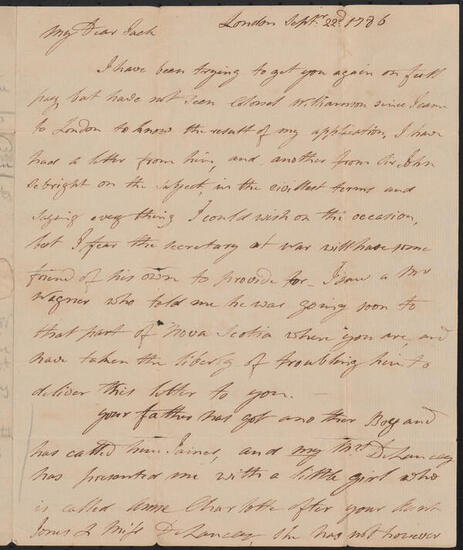 London Septr. 22d. 1786
My Dear Jack
I have been trying to get you again on full
pay but have not seen Colonel Williamson since I came
to London to know the result of my application, I have
had a letter from him, and another from Sir John
Sebright on the subject, in the civillest terms and
saying every thing I could wish on the occasion,
but I fear the secretary at war will have some
friend of his own to provide for - I saw a Mr
Wagner who told me he was going soon to
that part of Nova Scotia where you are, and
have taken the liberty of troubling him to
deliver this letter to you. -
your father has got another Boy and
has called him James, and my Mrs. DeLancey
has presented me with a little girl who
is called Anne Charlotte after your Aunt
Jones & Miss DeLancey, she has not however